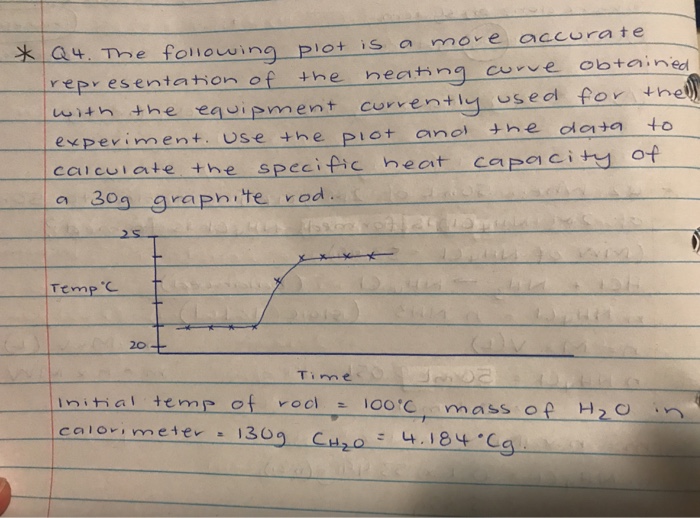 * Q4. The following plot is a more accurate
representation of the heating curve obtained
with the equipment currently used for the
experiment. Use the plot and the data to
calculate the specific heat capacity of
a 30g graphite rod.
25
Temp°C
20
Time
Initial temp of rod = 100°C, mass of H2O in
calorimeter = 130g CH2O = 4.184°Cg.